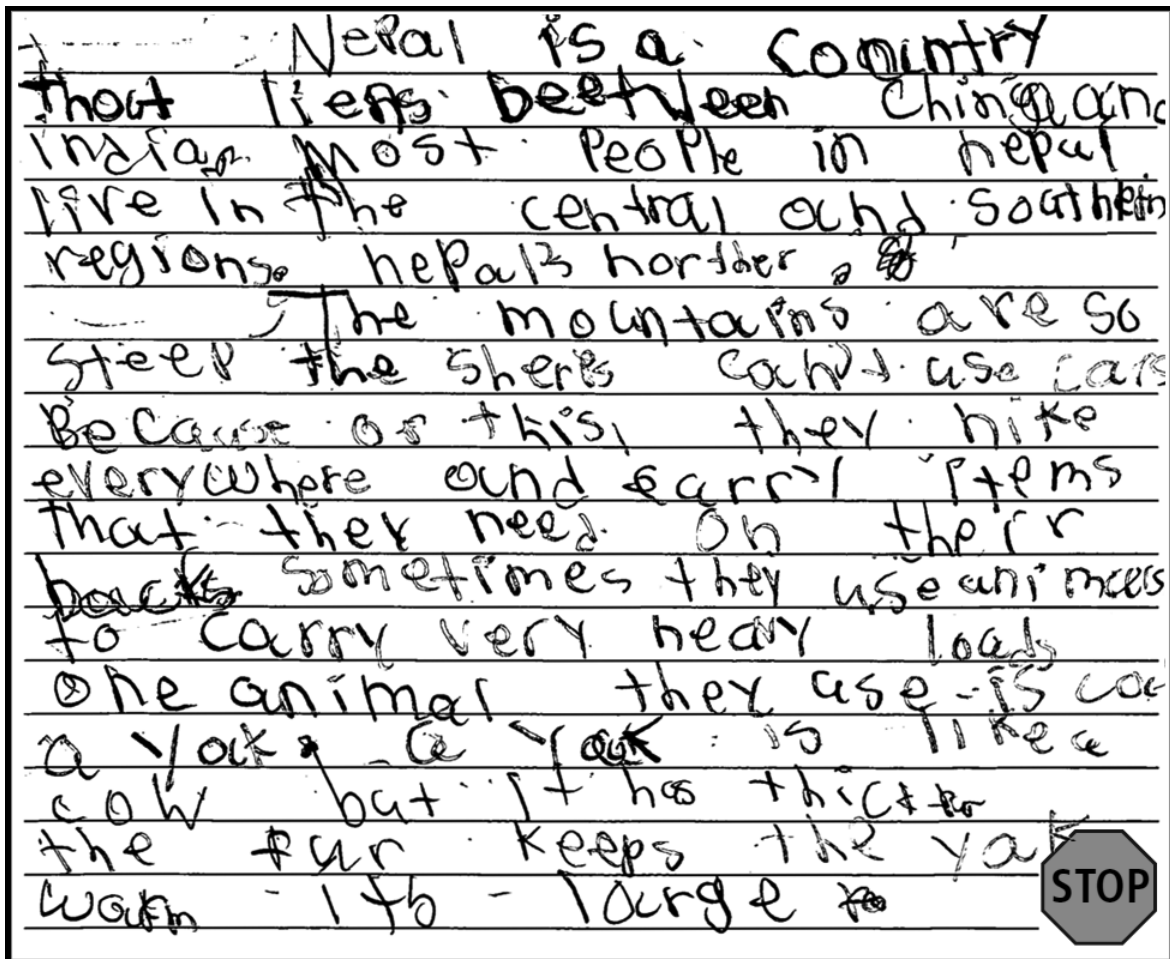 Nepal is a comintry
thout liens beetween China and
india. Most People in nepal
live in the central and southern
regions. nepal's norther.
The mountains are so
steep the sherps can't use cars
Because of this, they hike
everywhere and carry items
that they need on their
backs sometimes they use animals
to carry very heavy loads
One animal they use is
a yak. a yak is like a
cow but it has thick
the fur keeps the yak
warm its large
STOP